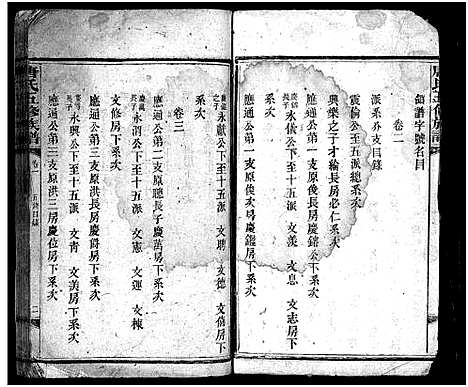 唐氏五修族譜
領譜字號名目
卷二
派系分支目錄
震倫公至五派總系次
興樂之子才綸長房必仁系次
應通公第一支原後長房慶錥公下系次
慶錥長子 永儀公下至十五派 文美 文息 文志房下系次
應通公第一支原俊次房慶鑑房下系次
慶鑑之子 永獻公下至十五派 文聘 文德 文脩房下系次
卷三
應通公第二支原聰長子慶萬房下系次
慶萬長子 永泗公下至十五派 文憲 文運 文棟
文修房下系次
應通公第三支原洪長房慶爵房下系次
慶爵長子 永興公下至十五派 文青 文美房下系次
應通公第三支原洪三房慶位房下系次
唐氏五修族譜
卷一
五總目錄
二